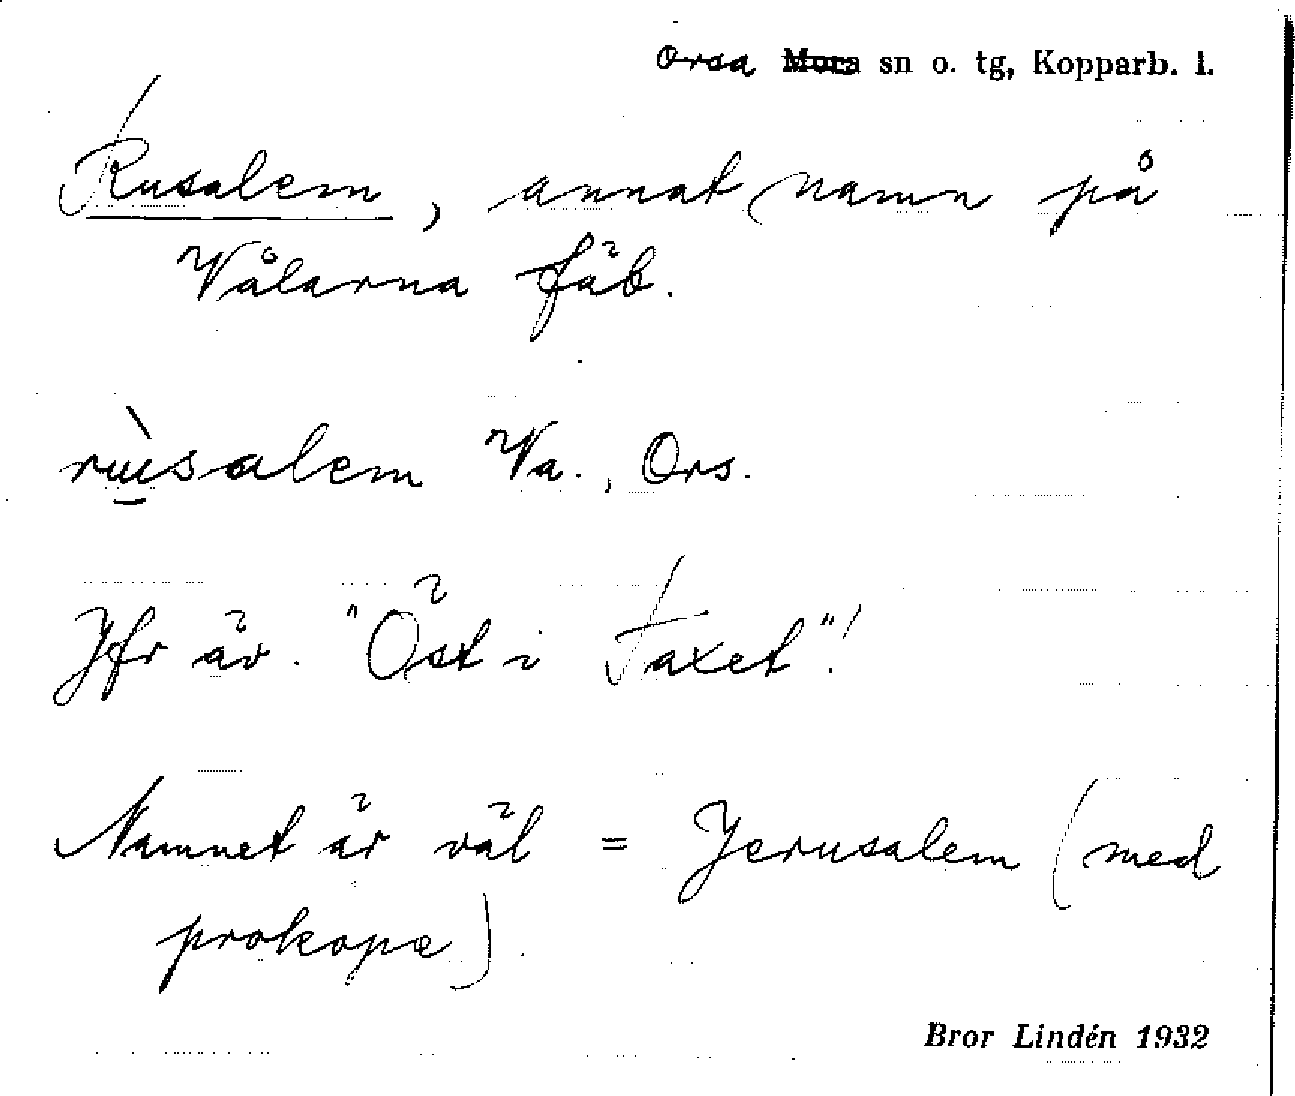 Orsa ~~Mora~~ sn o. tg, Kopparb. l.
Rusalem, annat namn på
Vålarna fäb.
rùsalem Va., Ors.
Jfr äv. "Öst i Taxet"!
Namnet är väl = Jerusalem (med
prokope).
Bror Lindén 1932